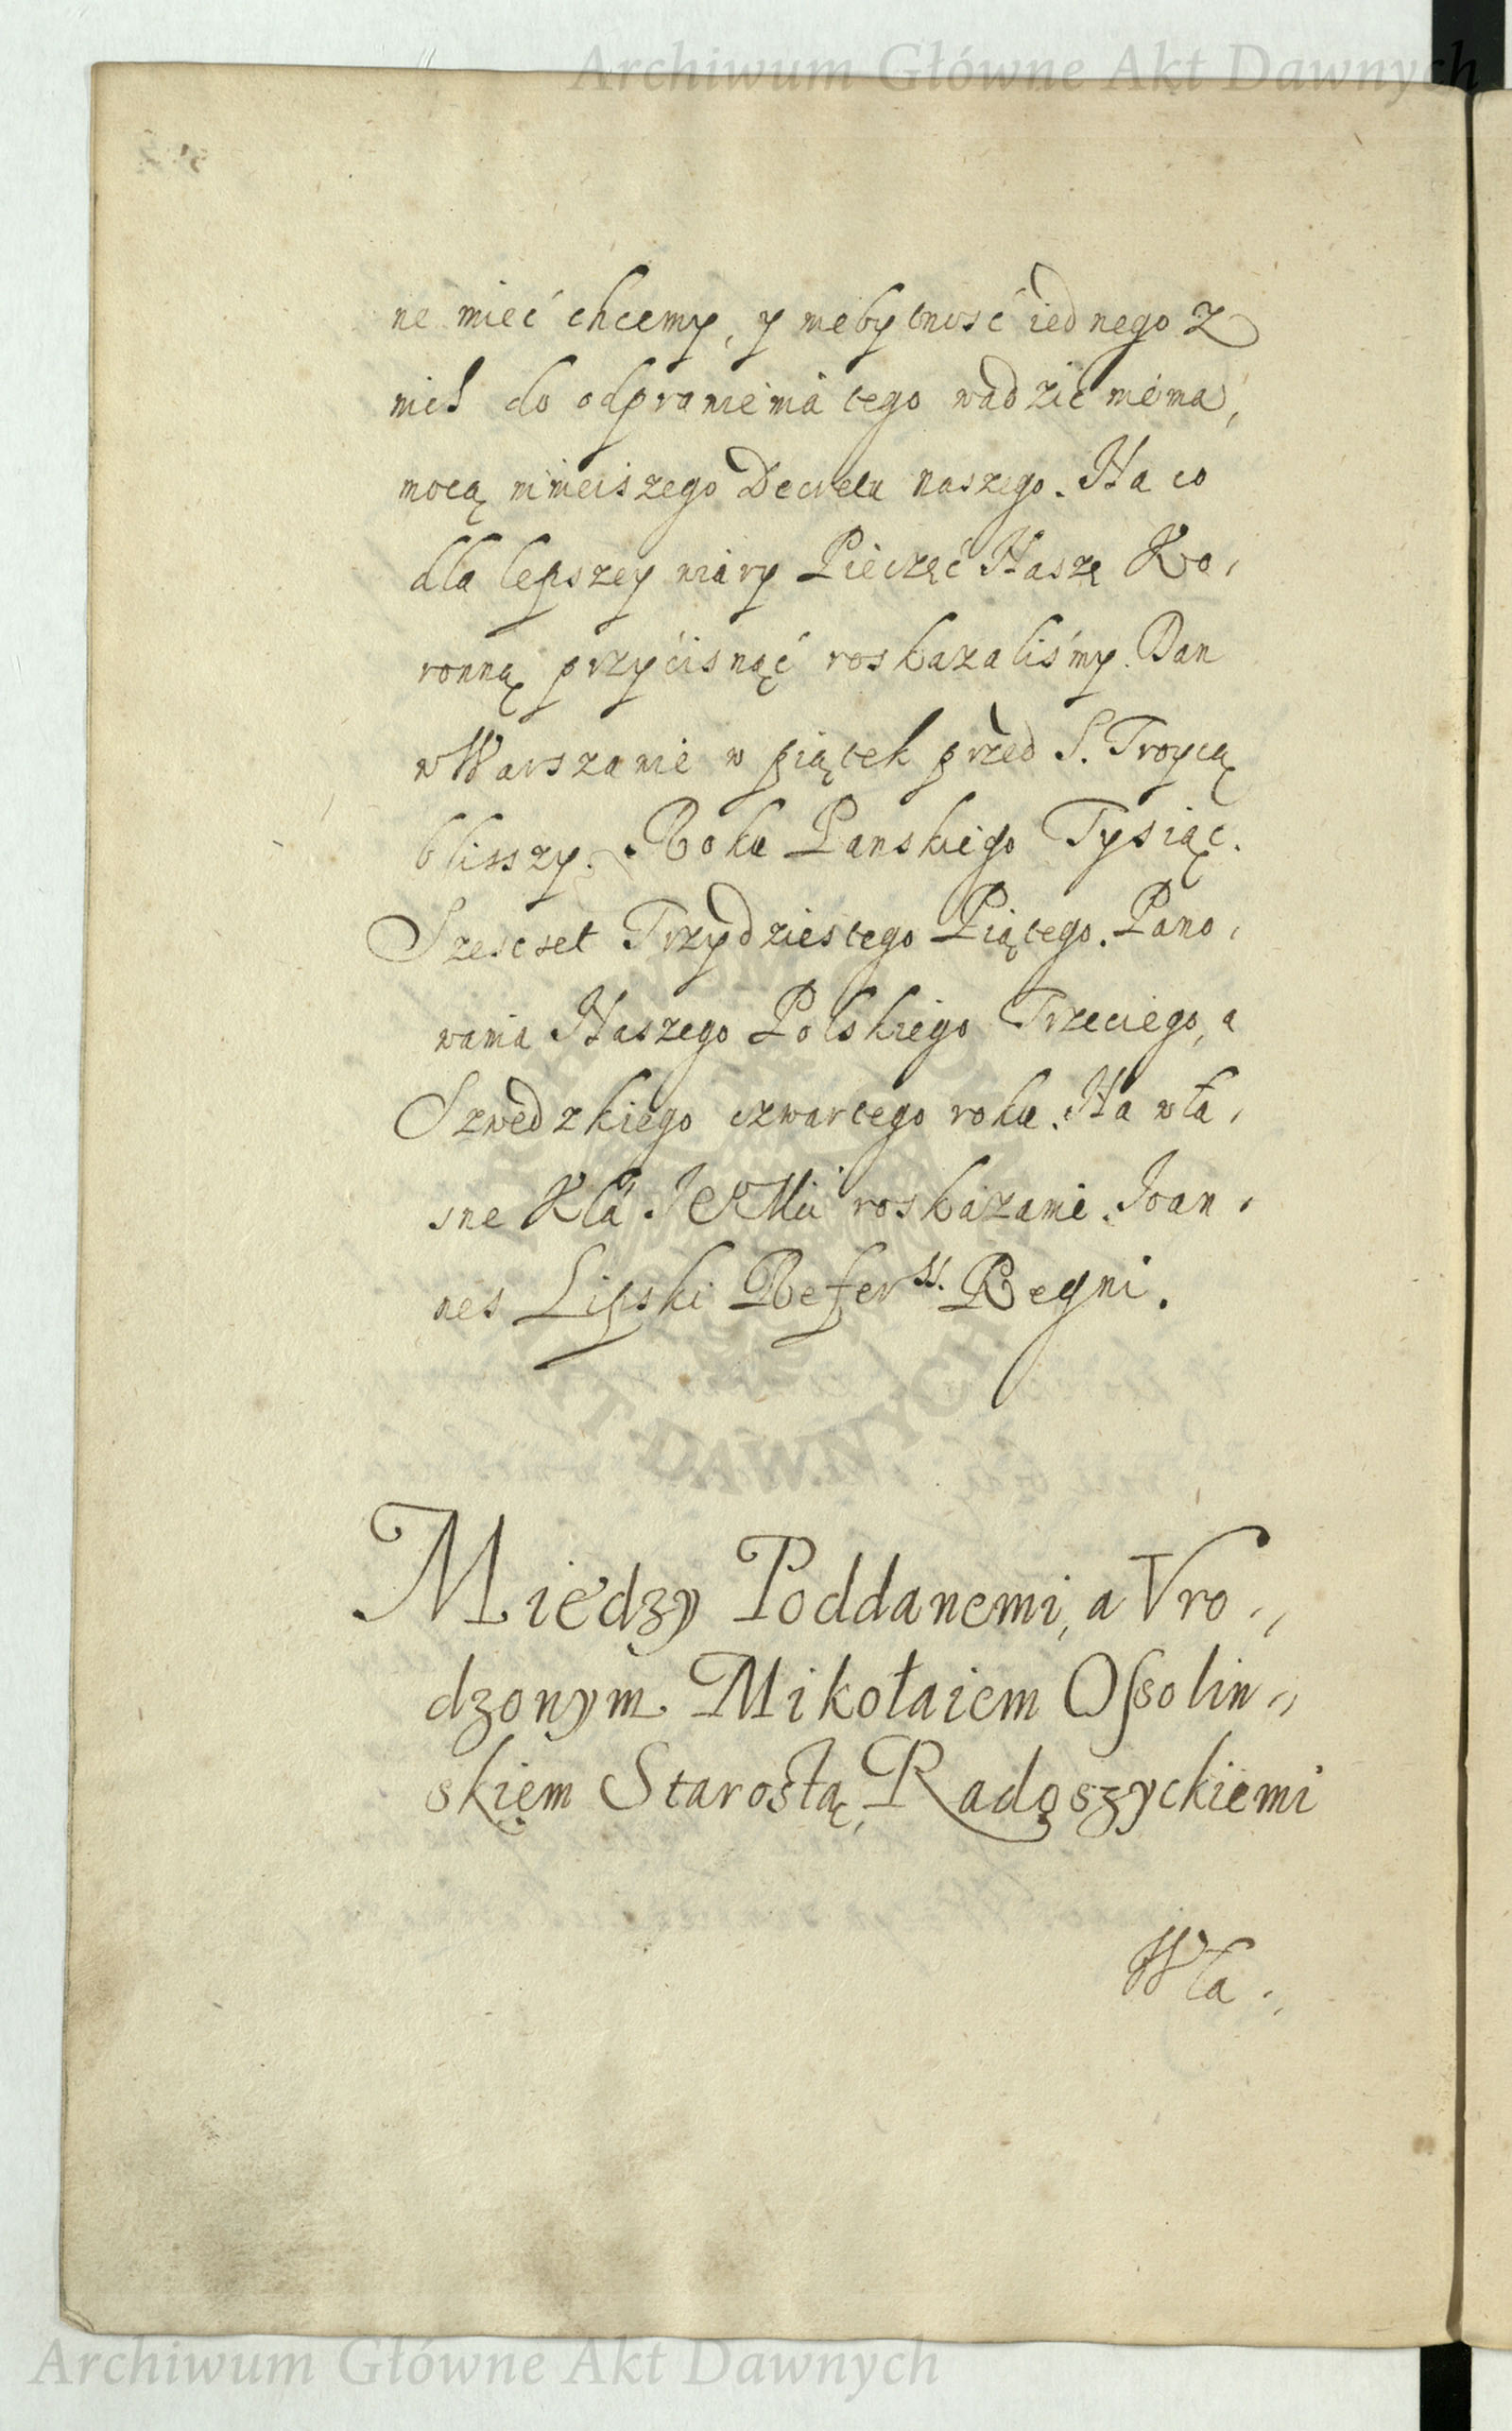 Archiwum Główne Akt Dawnych
ne mieć chcemy, y niebytność iednego z
nich do odprawienia tego wadzić niema,
mocą ninieiszego Decretu naszego. Na co
dla lepszey wiary Pieczęć Naszę Ko,
ronną przyćisnąć roskazaliśmy. Dan
w Warszawie w piątek przed S. Troycą
blisszy. Roku Panskiego Tysiąc.
Szescset Trzydziestego Piątego. Pano,
wania Naszego Polskiego Trzeciego, a
Szwedzkiego czwartego roku. Na wła,
sne Kla JeKMći roskazanie. Joan,
nes Lipski Refer. Regni.
Miedzy Poddanemi, a Vro,,
dzonym Mikołaiem Ossolin,,
skięm Starostą, Radoszyckiemi
Wła,,
AKT DAWNYCH
Archiwum Główne Akt Dawnych